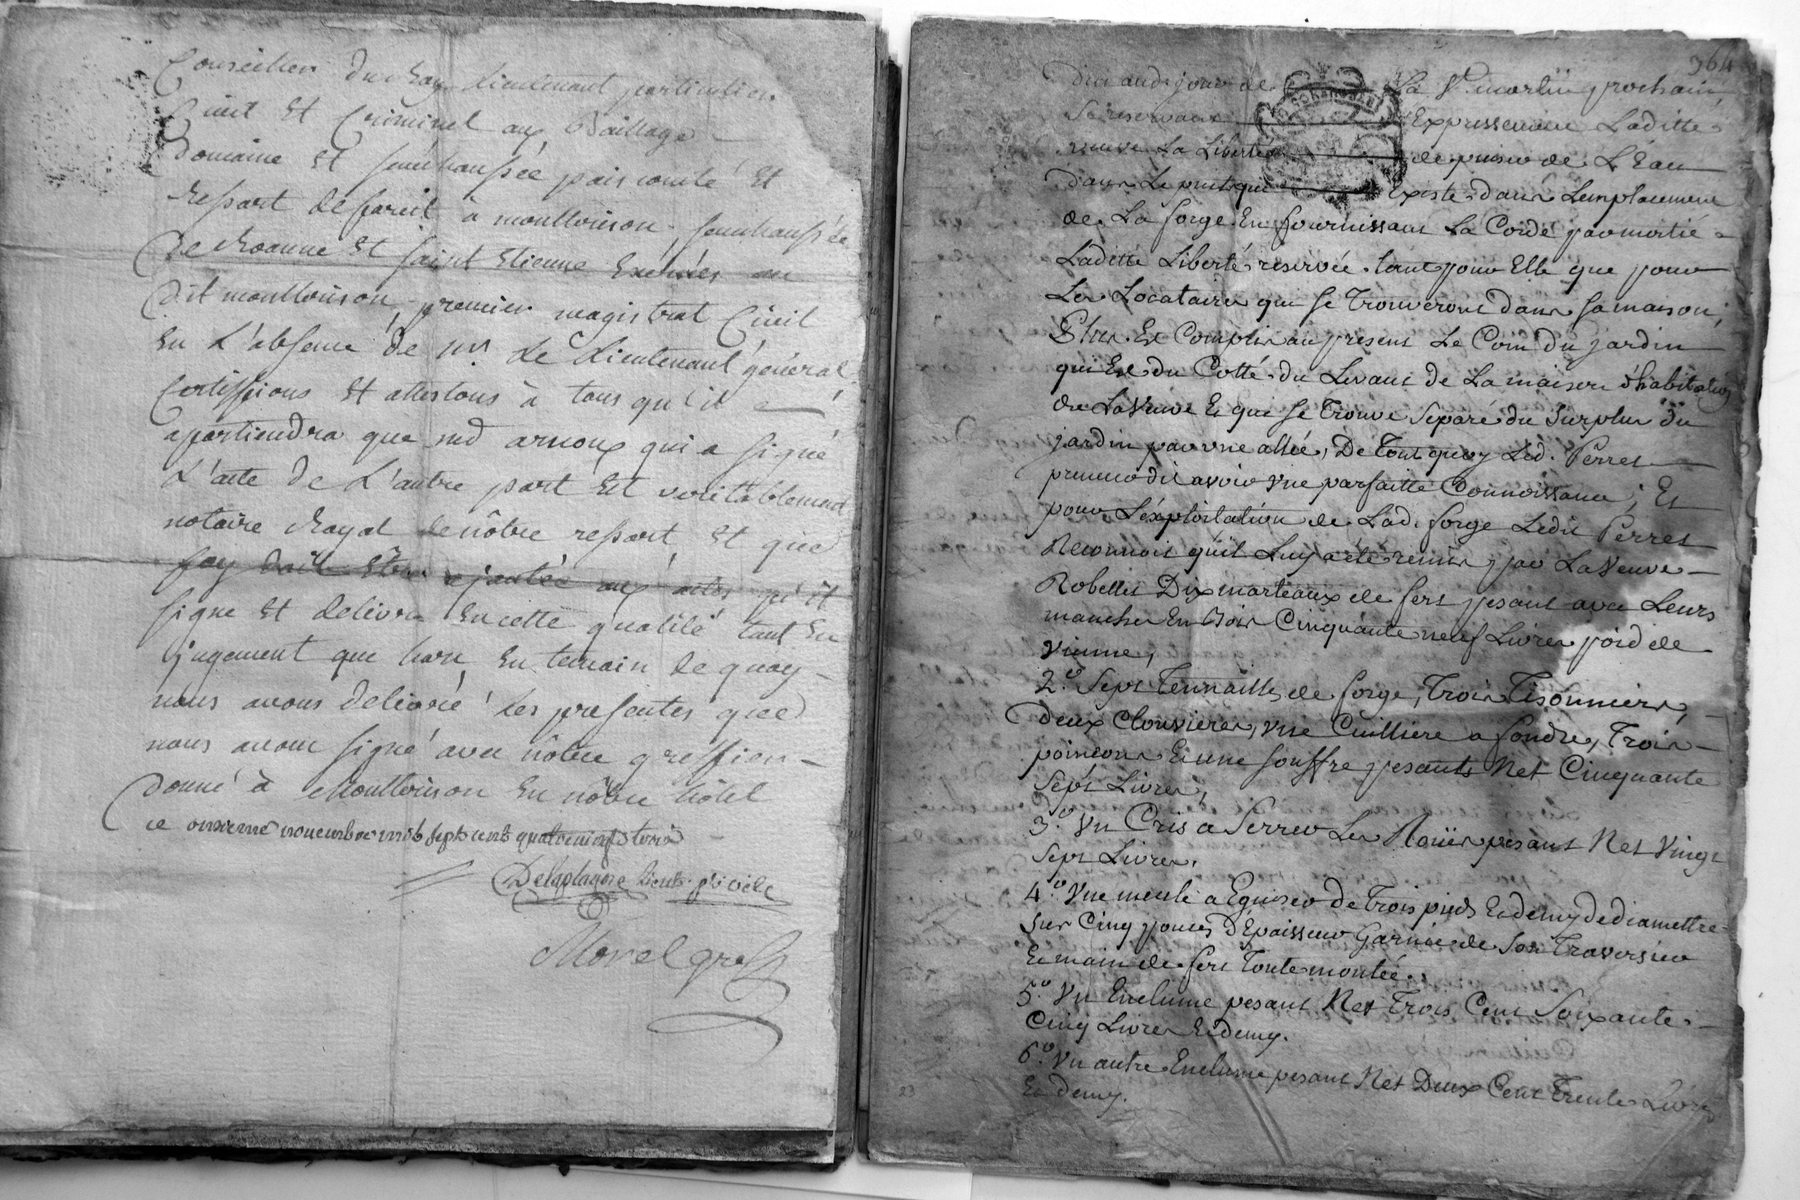 Conseiller du Roy lieutenant particulier
Civil et Criminel aux Bailliage
Domaine et sénéchaussée pais comté et
ressort de foretz à montbrison, senechaussée
De Roanne et saint Etienne en
Dit montbrison, premier magistrat Civil
En L'absence de mr Le Lieutenant général
Certiffions et attestons à tous qu'il
apartiendra que med arnoux qui a signé
L'acte de L'autre part est veritablement
notaire Royal de nôtre ressort et que
foy doit être ajoutée aux actes qu'il
signe et delivre en cette qualité tant en
jugement que hors en temoin de quoy
nous avons delivré les presentes que
nous avons signé avec nôtre greffier
Donné à Montbrison en nôtre hôtel
ce onzieme novembre mil sept cent quatrevingt trois
Delaplagne lieut. p. civile
Morel greff
364
jour de La St martin prochain
Se reservant Expressement Laditte
veuve La Liberté de puiser de L'Eau
dans Le puit qui Existe dans Lemplacement
de La forge En fournissant La Corde par moitié
Laditte Liberté reservée tant pour Elle que pour
Les Locataires qui se Trouveront dans sa maison;
Plus Est Compris au present Le Coin du jardin
qui Est du Cotté du Levant de La maison d'habitation
de La Veuve Et qui se Trouve separé du surplus du
jardin par une allée, De Tout quoy Led. Perret
preneur dit avoir une parfaitte Connoissance; Et
pour L'exploitation de Lad. forge Ledit Perret
Reconnoit qu'il Luy a été remis par La Veuve
Robellet Dix marteaux de fert pesant avec Leurs
manches En Bois Cinquante neuf Livres poid de
vienne,
2.o Sept Tennailles de forge, Trois Tisonniers,
deux Clouvieres, une Cuilliere a fondre, Trois
poincons Et une souffre pesants Net Cinquante
Sept Livres,
3.o Un Cris a Serrer Les Roües pesant Net Vingt
Sept Livres.
4.o Une meule a Eguiser de Trois pieds Et demy de diamettre
sur Cinq pouces d'Epaisseur Garnie de son Traversier
Et main de fert Toute montée.
5.o Un Enclume pesant Net Trois Cent Soixante
Cinq Livres Et demy.
6.o Un autre Enclume pesant Net Deux Cent Trente Livres
Et demy.
23